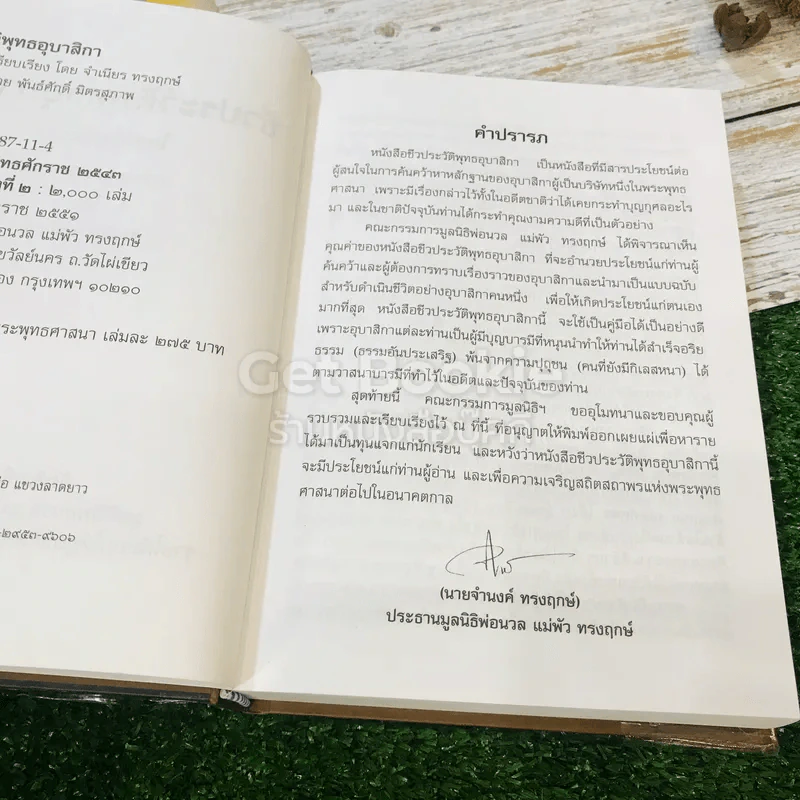 พุทธอุบาสิกา
รียบเรียง โดย จำเนียร ทรงฤกษ์
ย พันธ์ศักดิ์ มิตรสุภาพ
87-11-4
ทธศักราช ๒๕๔๓
ที่ ๒ : ๒,๐๐๐ เล่ม
ราช ๒๕๕๑
อนวล แม่พัว ทรงฤกษ์
ยวัลย์นคร ถ.วัดไผ่เขียว
อง กรุงเทพฯ ๑๐๒๑๐
ระพุทธศาสนา เล่มละ ๒๗๕ บาท
อ แขวงลาดยาว
-๒๙๕๓-๙๖๐๖
คำปรารภ
หนังสือชีวประวัติพุทธอุบาสิกา เป็นหนังสือที่มีสารประโยชน์ต่อ
ผู้สนใจในการค้นคว้าหาหลักฐานของอุบาสิกาผู้เป็นบริษัทหนึ่งในพระพุทธ
ศาสนา เพราะมีเรื่องกล่าวไว้ทั้งในอดีตชาติว่าได้เคยกระทำบุญกุศลอะไร
มา และในชาติปัจจุบันท่านได้กระทำคุณงามความดีที่เป็นตัวอย่าง
คณะกรรมการมูลนิธิพ่อนวล แม่พัว ทรงฤกษ์ ได้พิจารณาเห็น
คุณค่าของหนังสือชีวประวัติพุทธอุบาสิกา ที่จะอำนวยประโยชน์แก่ท่านผู้
ค้นคว้าและผู้ต้องการทราบเรื่องราวของอุบาสิกาและนำมาเป็นแบบฉบับ
สำหรับดำเนินชีวิตอย่างอุบาสิกาคนหนึ่ง เพื่อให้เกิดประโยชน์แก่ตนเอง
มากที่สุด หนังสือชีวประวัติพุทธอุบาสิกานี้ จะใช้เป็นคู่มือได้เป็นอย่างดี
เพราะอุบาสิกาแต่ละท่านเป็นผู้มีบุญบารมีที่หนุนนำทำให้ท่านได้สำเร็จอริย
ธรรม (ธรรมอันประเสริฐ) พ้นจากความปุถุชน (คนที่ยังมีกิเลสหนา) ได้
ตามวาสนาบารมีที่ทำไว้ในอดีตและปัจจุบันของท่าน
สุดท้ายนี้ คณะกรรมการมูลนิธิฯ ขออนุโมทนาและขอบคุณผู้
รวบรวมและเรียบเรียงไว้ ณ ที่นี้ ที่อนุญาตให้พิมพ์ออกเผยแผ่เพื่อหาราย
ได้มาเป็นทุนแจกแก่นักเรียน และหวังว่าหนังสือชีวประวัติพุทธอุบาสิกานี้
จะมีประโยชน์แก่ท่านผู้อ่าน และเพื่อความเจริญสถิตสถาพรแห่งพระพุทธ
ศาสนาต่อไปในอนาคตกาล
(นายจำนงค์ ทรงฤกษ์)
ประธานมูลนิธิพ่อนวล แม่พัว ทรงฤกษ์
Get Bookie